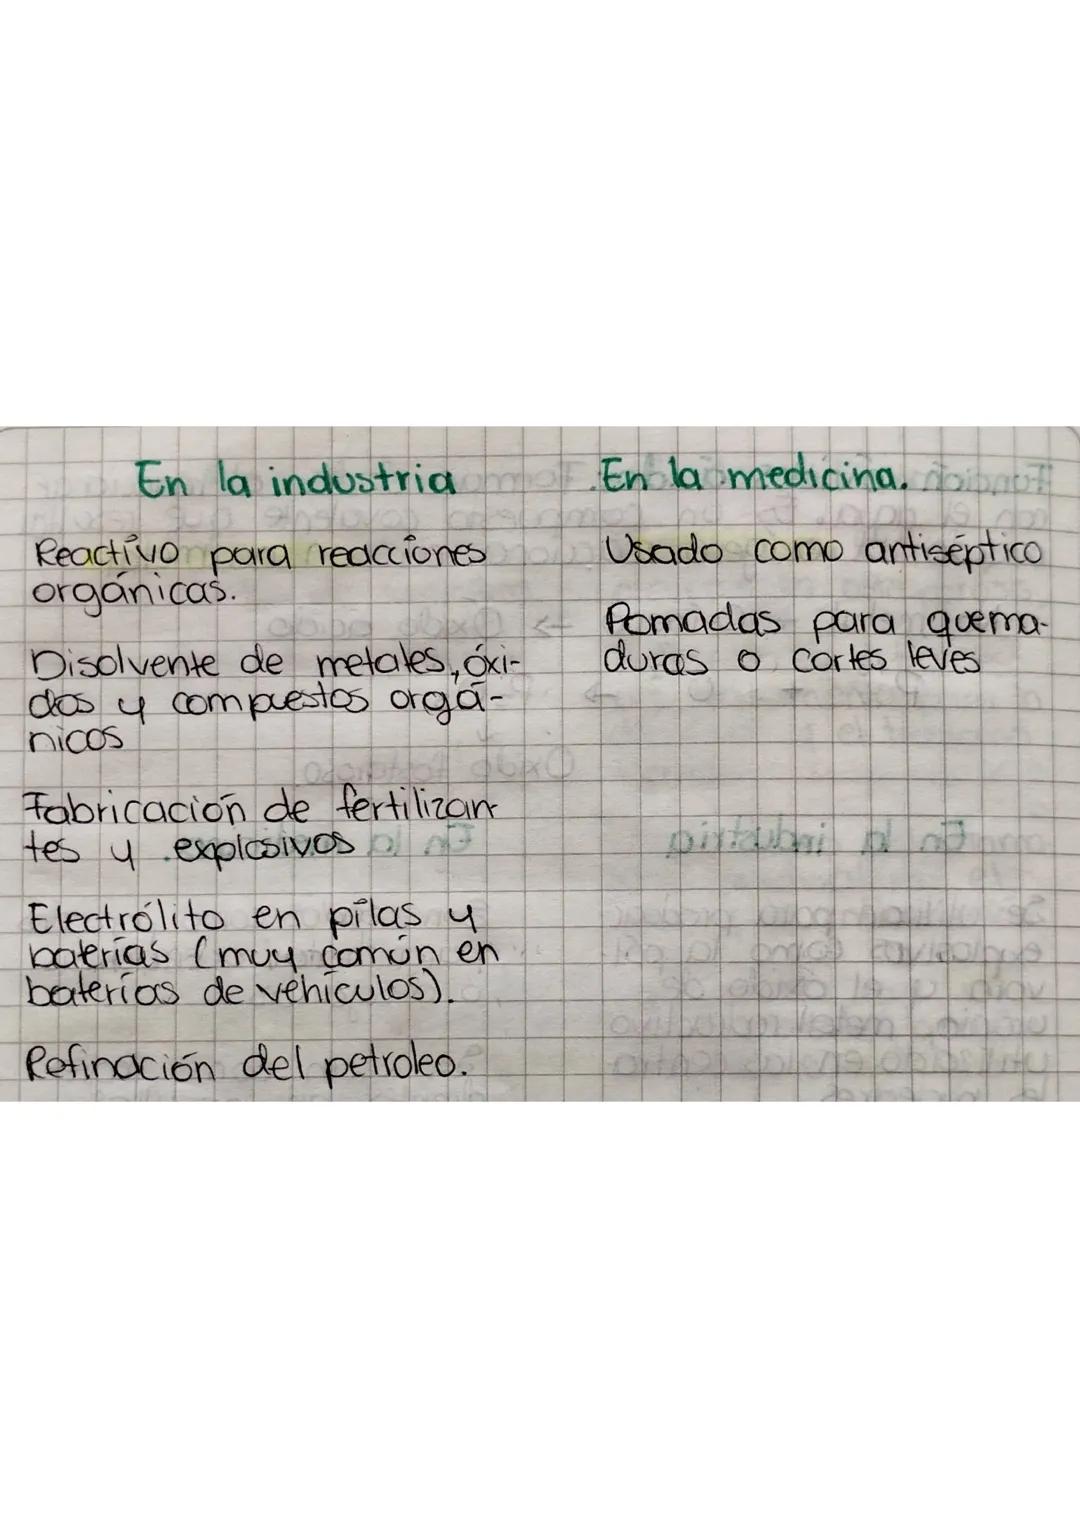 En la industria
Reactivo para reacciones
orgánicas.
Disolvente de metales, óxi-
dos y compuestos orgá-
nicos
Fabricación de fertilizan-
tes y explosivos
Electrólito en pilas y
baterías (muy común en
baterías de vehículos).
Refinación del petroleo.
En la medicina.
Usado como antiséptico
Pomadas para quema-
duras o cortes leves